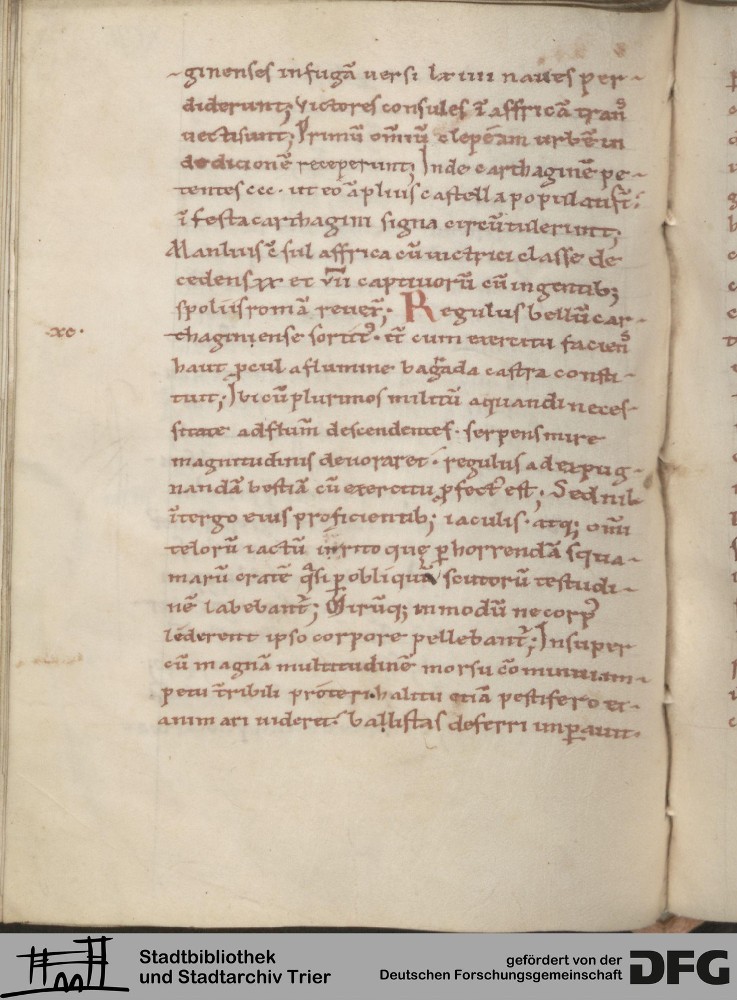 ginenses infugā uersi lxiiii naues per-
diderunt; victores consules ī affricā tranꝰ
uectisunt; Primū om̄iū clepeam urbē in
dedicionē receperunt; Inde carthaginē pe-
tentes ccc · ut eo āplius castella populatisr̄;
ī festa carthagini signa circūtulerunt;
Manlius c̄sul affrica cū uictrici classe de
cedens xx et vii captiuorū cū ingentib;
spoliis romā reuer̄; Regulus bellū car-
xc·
thaginiense sortitꝰ · it̄ cum exercitu facienꝰ
haut ꝓcul aflumine bagrada castra consti-
tuit; Ibi cū plurimos militū aquandi neces-
sitate adflum̄ descendentes · serpens mire
magnitudinis deuoraret · regulus ad expug-
nandā bestiā cū exercitu ꝓfectꝰ est; Sed nil
ī tergo eius proficientib; iaculis · atq; om̄i
telorū iactū irrito quę ꝑ horrendā squa-
marū cratē q̄si ꝑ obliquā scutorū testudi-
nē labebant̄; Mirūq; inmodū ne corpꝰ
lederent ipso corpore pellebant̄; Insuper
cū magnā multitudinē morsu cōminui im-
petu t̄ribili proteri · halitu etiā pestifero ex-
animari uideret · ballistas deferri imꝑauit·
Stadtbibliothek
und Stadtarchiv Trier
gefördert von der
Deutschen Forschungsgemeinschaft
DFG